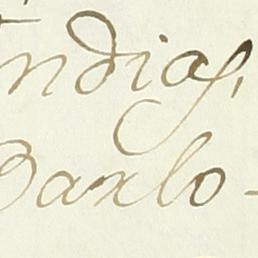 ndias,
Barlo-